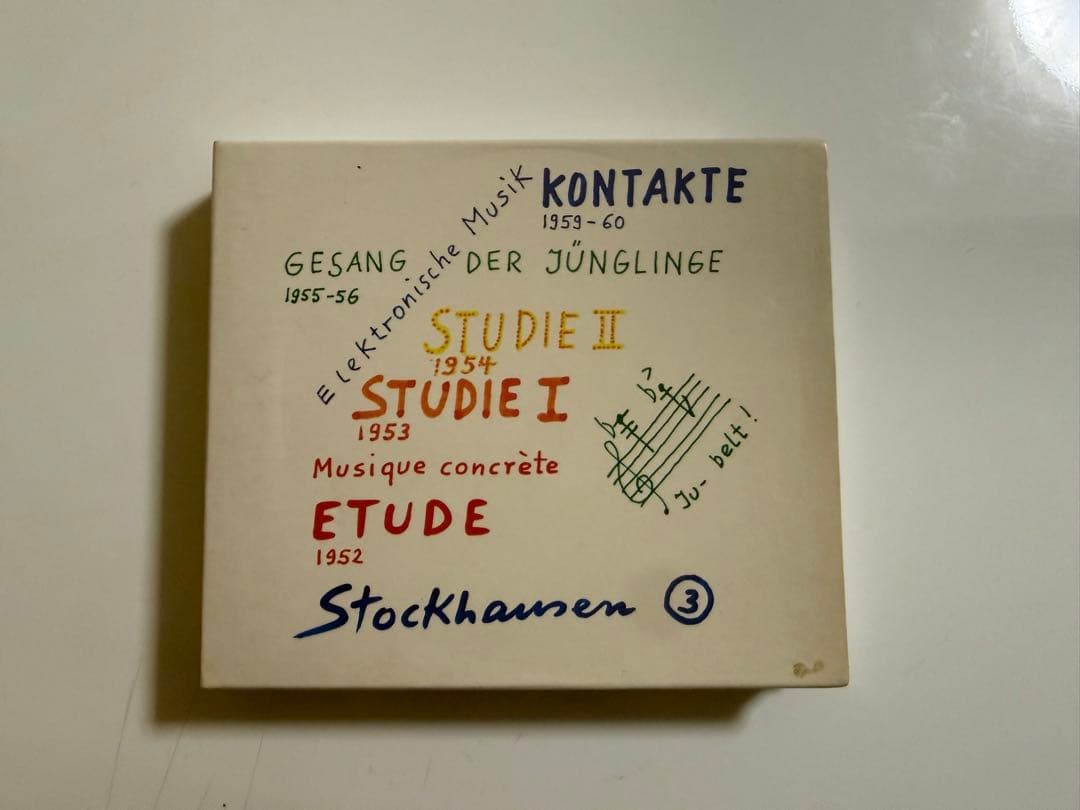 Elektronische Musik
KONTAKTE
1959-60
GESANG DER JÜNGLINGE
1955-56
STUDIE II
1954
STUDIE I
1953
Musique concrète
ETUDE
1952
Ju-belt!
Stockhausen ③